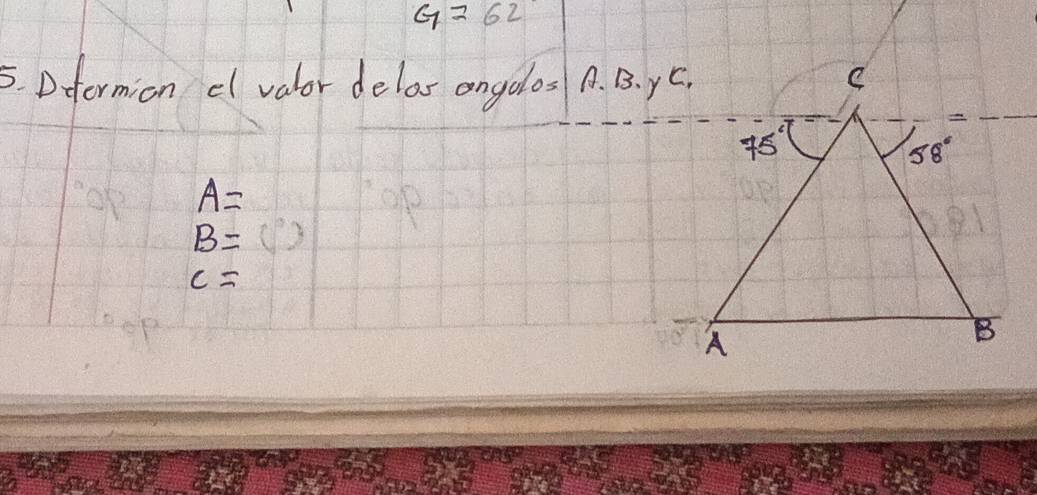 G = 62
5. Determion el valor delos angulos A. B. y C.
C
75°
58°
A =
B = ( )
C =
A
B